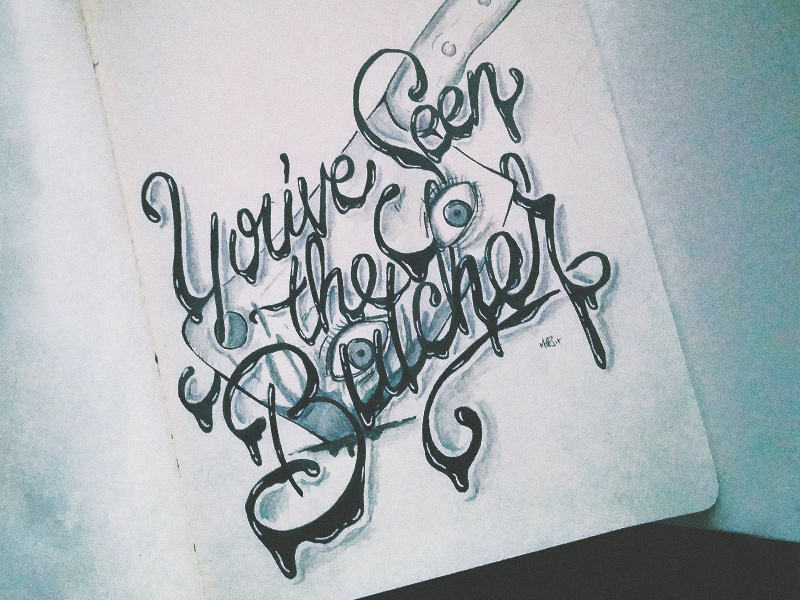 You've
Seen
the
Butcher